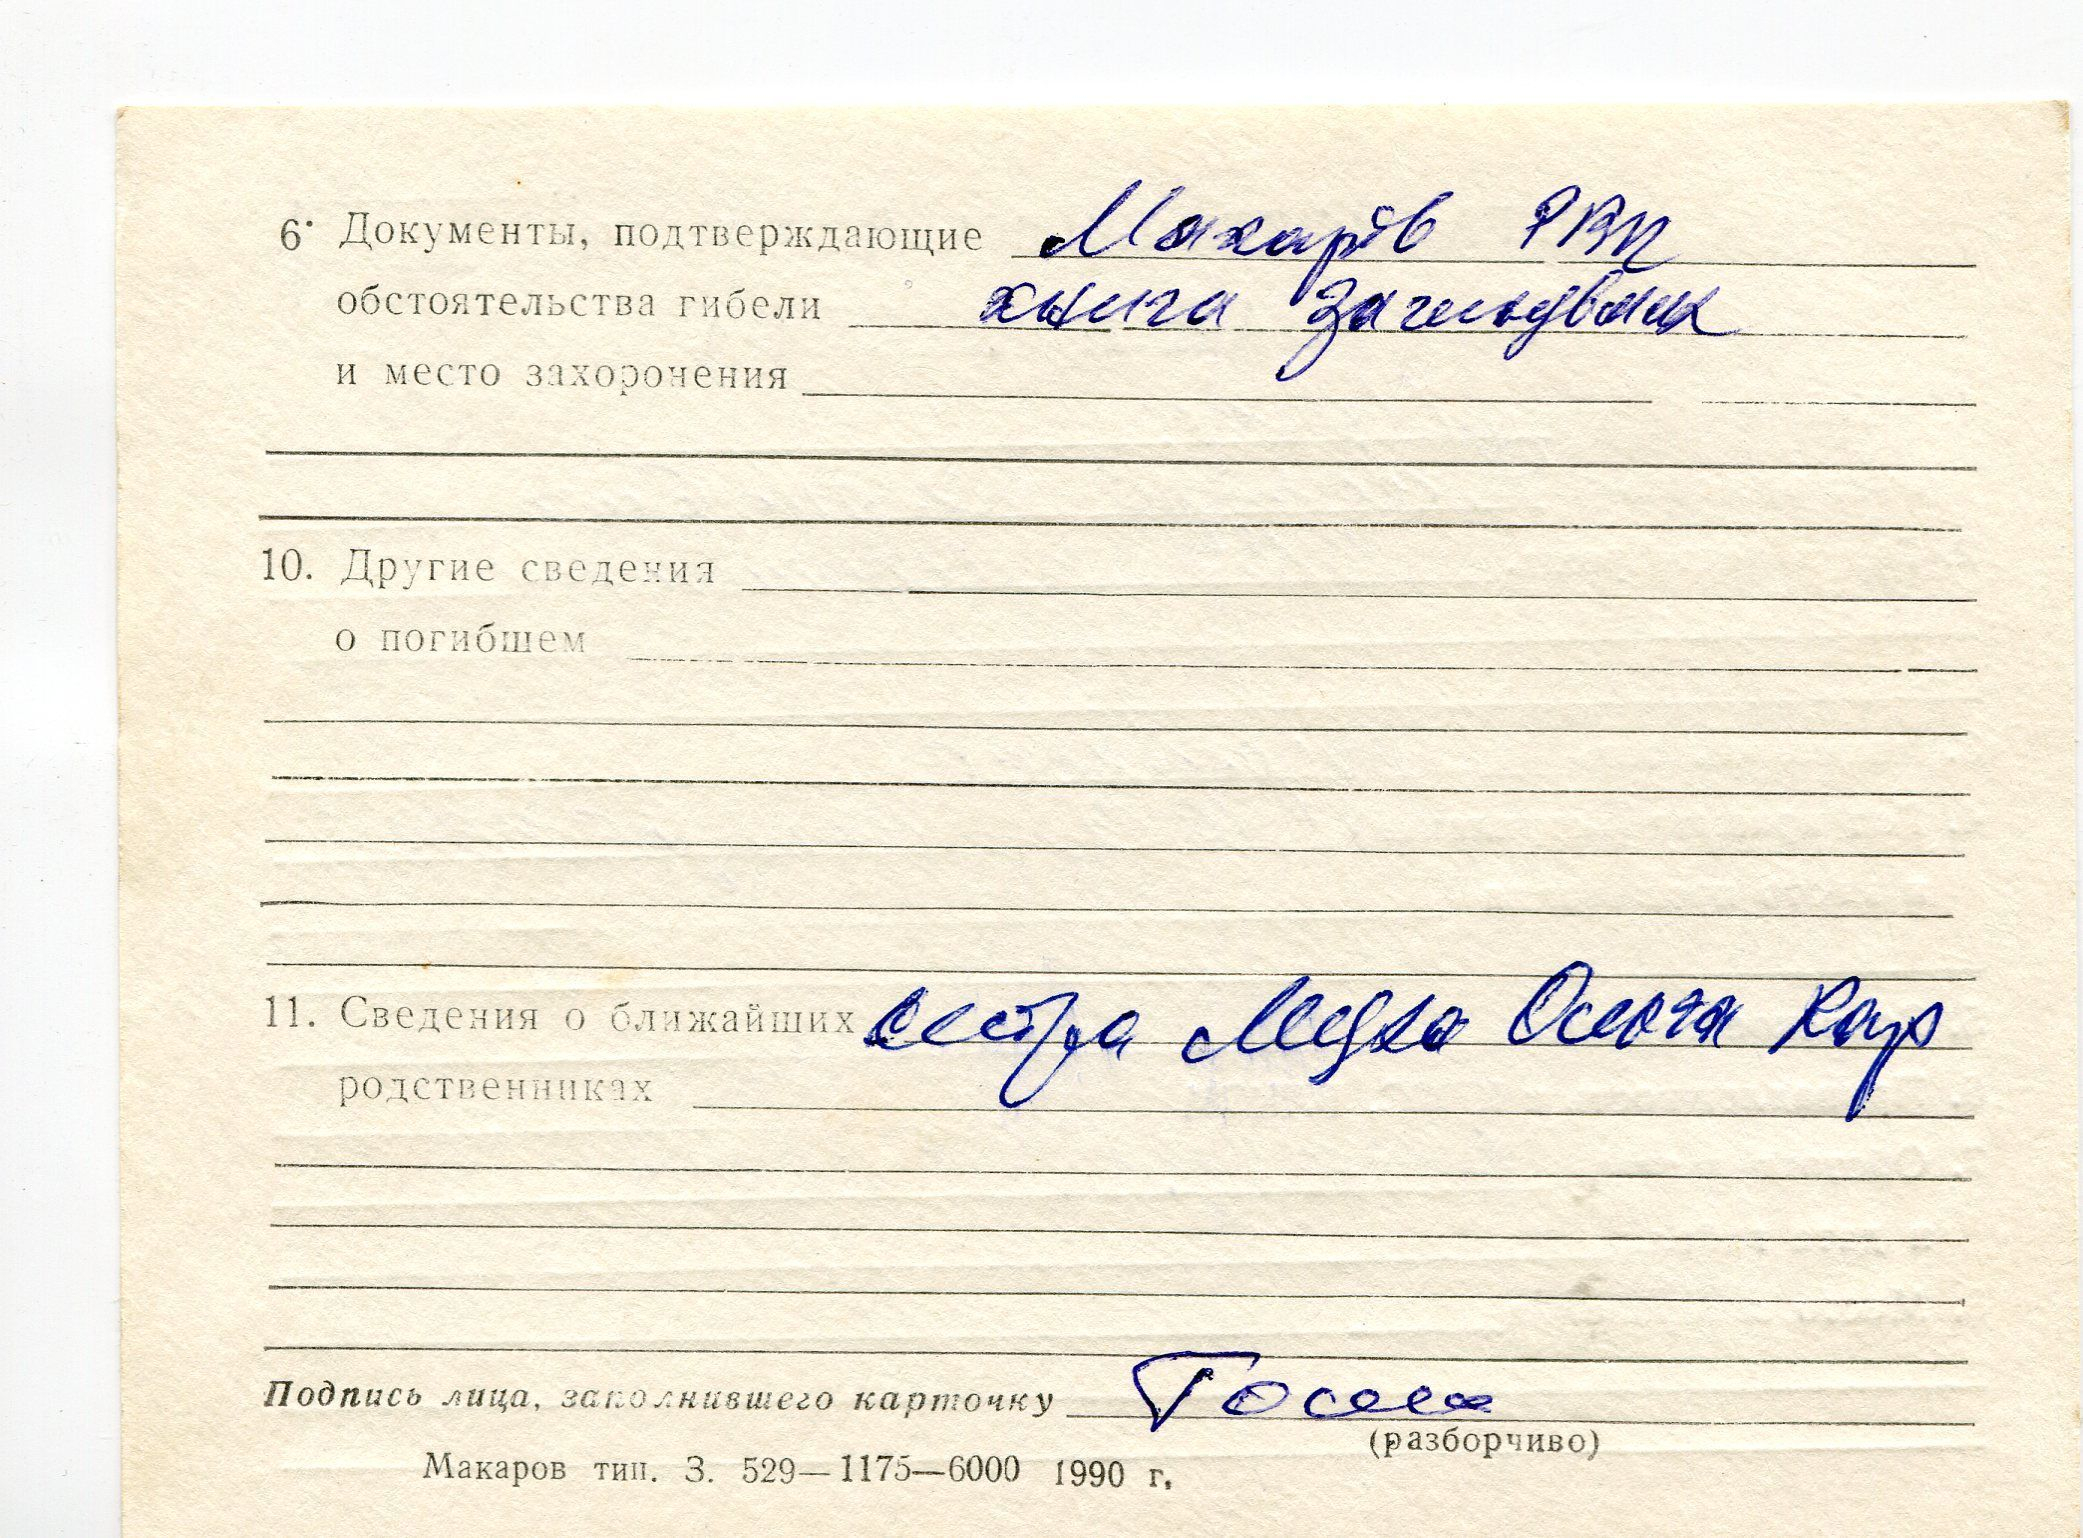 6. Документы, подтверждающие Макарів РВК
обстоятельства гибели книга
и место захоронения
10. Другие сведения
о погибшем
11. Сведения о ближайших сестра
родственниках
Подпись лица, заполнившего карточку
(разборчиво)
Макаров тип. З. 529—1175—6000 1990 г.